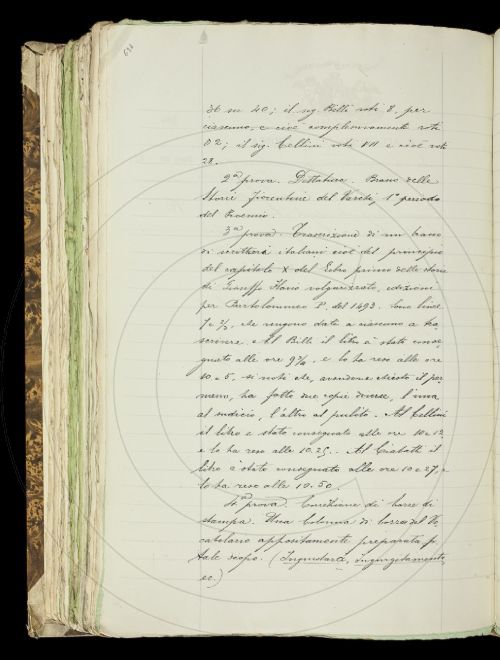 36 su 40; il sig. Billi voti 8 per
ciascuno, e cioè complessivamente voti
32; il sig. Cellini voti VII e cioè voti
28.
2ª prova. Dettatura. Brano delle
Storie fiorentine del Varchi, 1° periodo
del Proemio.
3ª prova. Trascrizione di un brano
di scrittori italiani cioè del principio
del capitolo X del Libro primo delle storie
di Giuseffo Flavo volgarizzato, edizione
per Bartolommeo P. del 1493. Sono linee
7 e ⅔ che vengono date a ciascuno a tra
scrivere. Al Billi il libro è stato conse
gnato alle ore 9¾, e lo ha reso alle ore
10 e 5, si noti che, avendone chiesto il per
messo, ha fatto due copie diverse, l'una
al sudicio, l'altra al pulito. Al Cellini
il libro è stato consegnato alle ore 10 e 12,
e lo ha reso alle 10.25. Al Ciabatti il
libro è stato consegnato alle ore 10 e 27, e
lo ha reso alle 10.50.
4ª prova. Correzione di bozze di
stampa. Una Colonna di bozza del Vo
cabolario appositamente preparata p.
tale scopo. (Ingiustare, ingiurgitamento,
ec.)